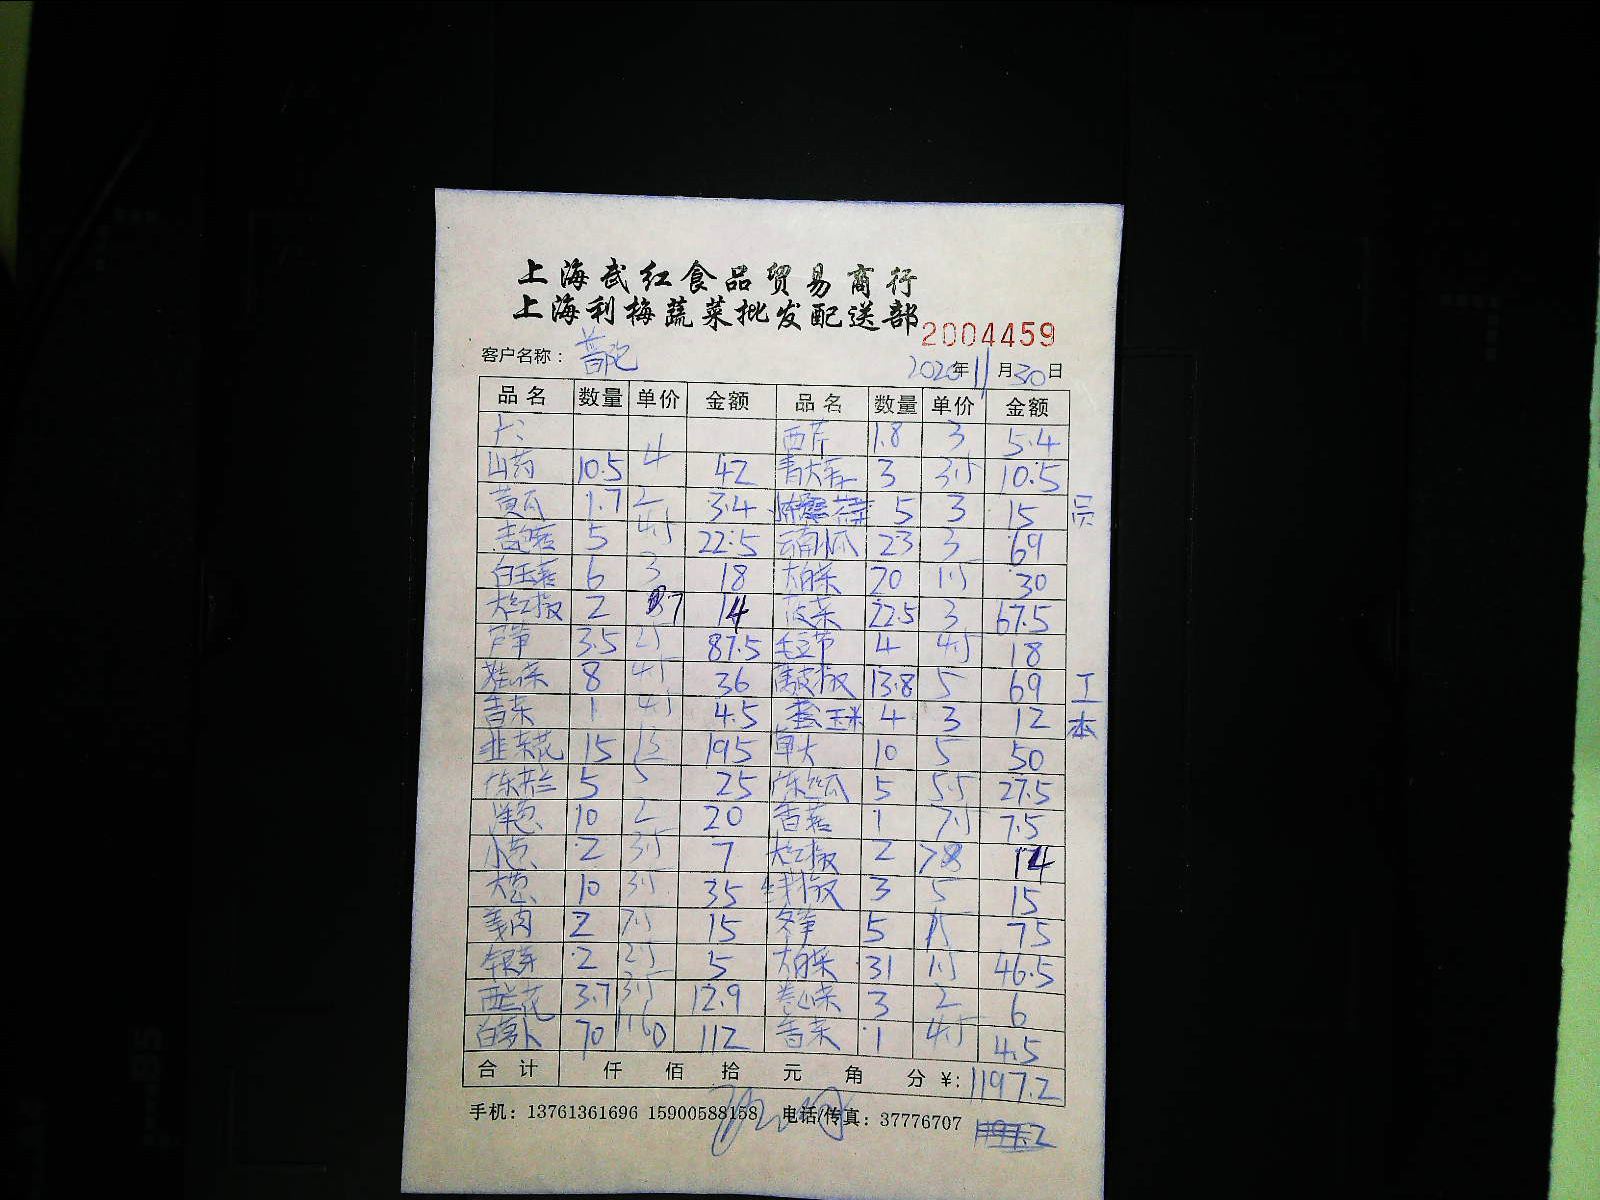 上海武红食品贸易商行
上海利梅蔬菜批发配送部
2004459
客户名称： 普陀 2020年11月30日
品名 数量 单价 金额 品名 数量 单价 金额
西芹 1.8 3 5.4
山药 10.5 4 42 3 3.5 10.5
黄瓜 1.7 2 3.4 5 3 15
5 4.5 22.5 云南小瓜 23 3 69
白玉菇 6 3 18 大白菜 20 1.5 30
大红椒 2 7 14 菠菜 22.5 3 67.5
芦笋 3.5 25 87.5 毛豆节 4 4.5 18
娃娃菜 8 4.5 36 薄皮椒 13.8 5 69
香菜 1 4.5 4.5 玉米 4 3 12
韭菜花 15 13 195 10 5 50
5 5 25 丝瓜 5 5.5 27.5
洋葱 10 2 20 香菇 1 7.5 7.5
小葱 2 3.5 7 大红椒 2 7 14
大葱 10 3.5 35 线椒 3 5 15
姜肉 2 7.5 15 冬笋 5 15 75
银芽 2 2.5 5 大白菜 31 1.5 46.5
西兰花 3.7 3.5 12.9 卷心菜 3 2 6
白萝卜 70 1.60 112 香菜 1 4.5 4.5
员
工
本
合计 仟 佰 拾 元 角 分 ¥: 1197.2
手机：13761361696 15900588158 电话/传真：37776707